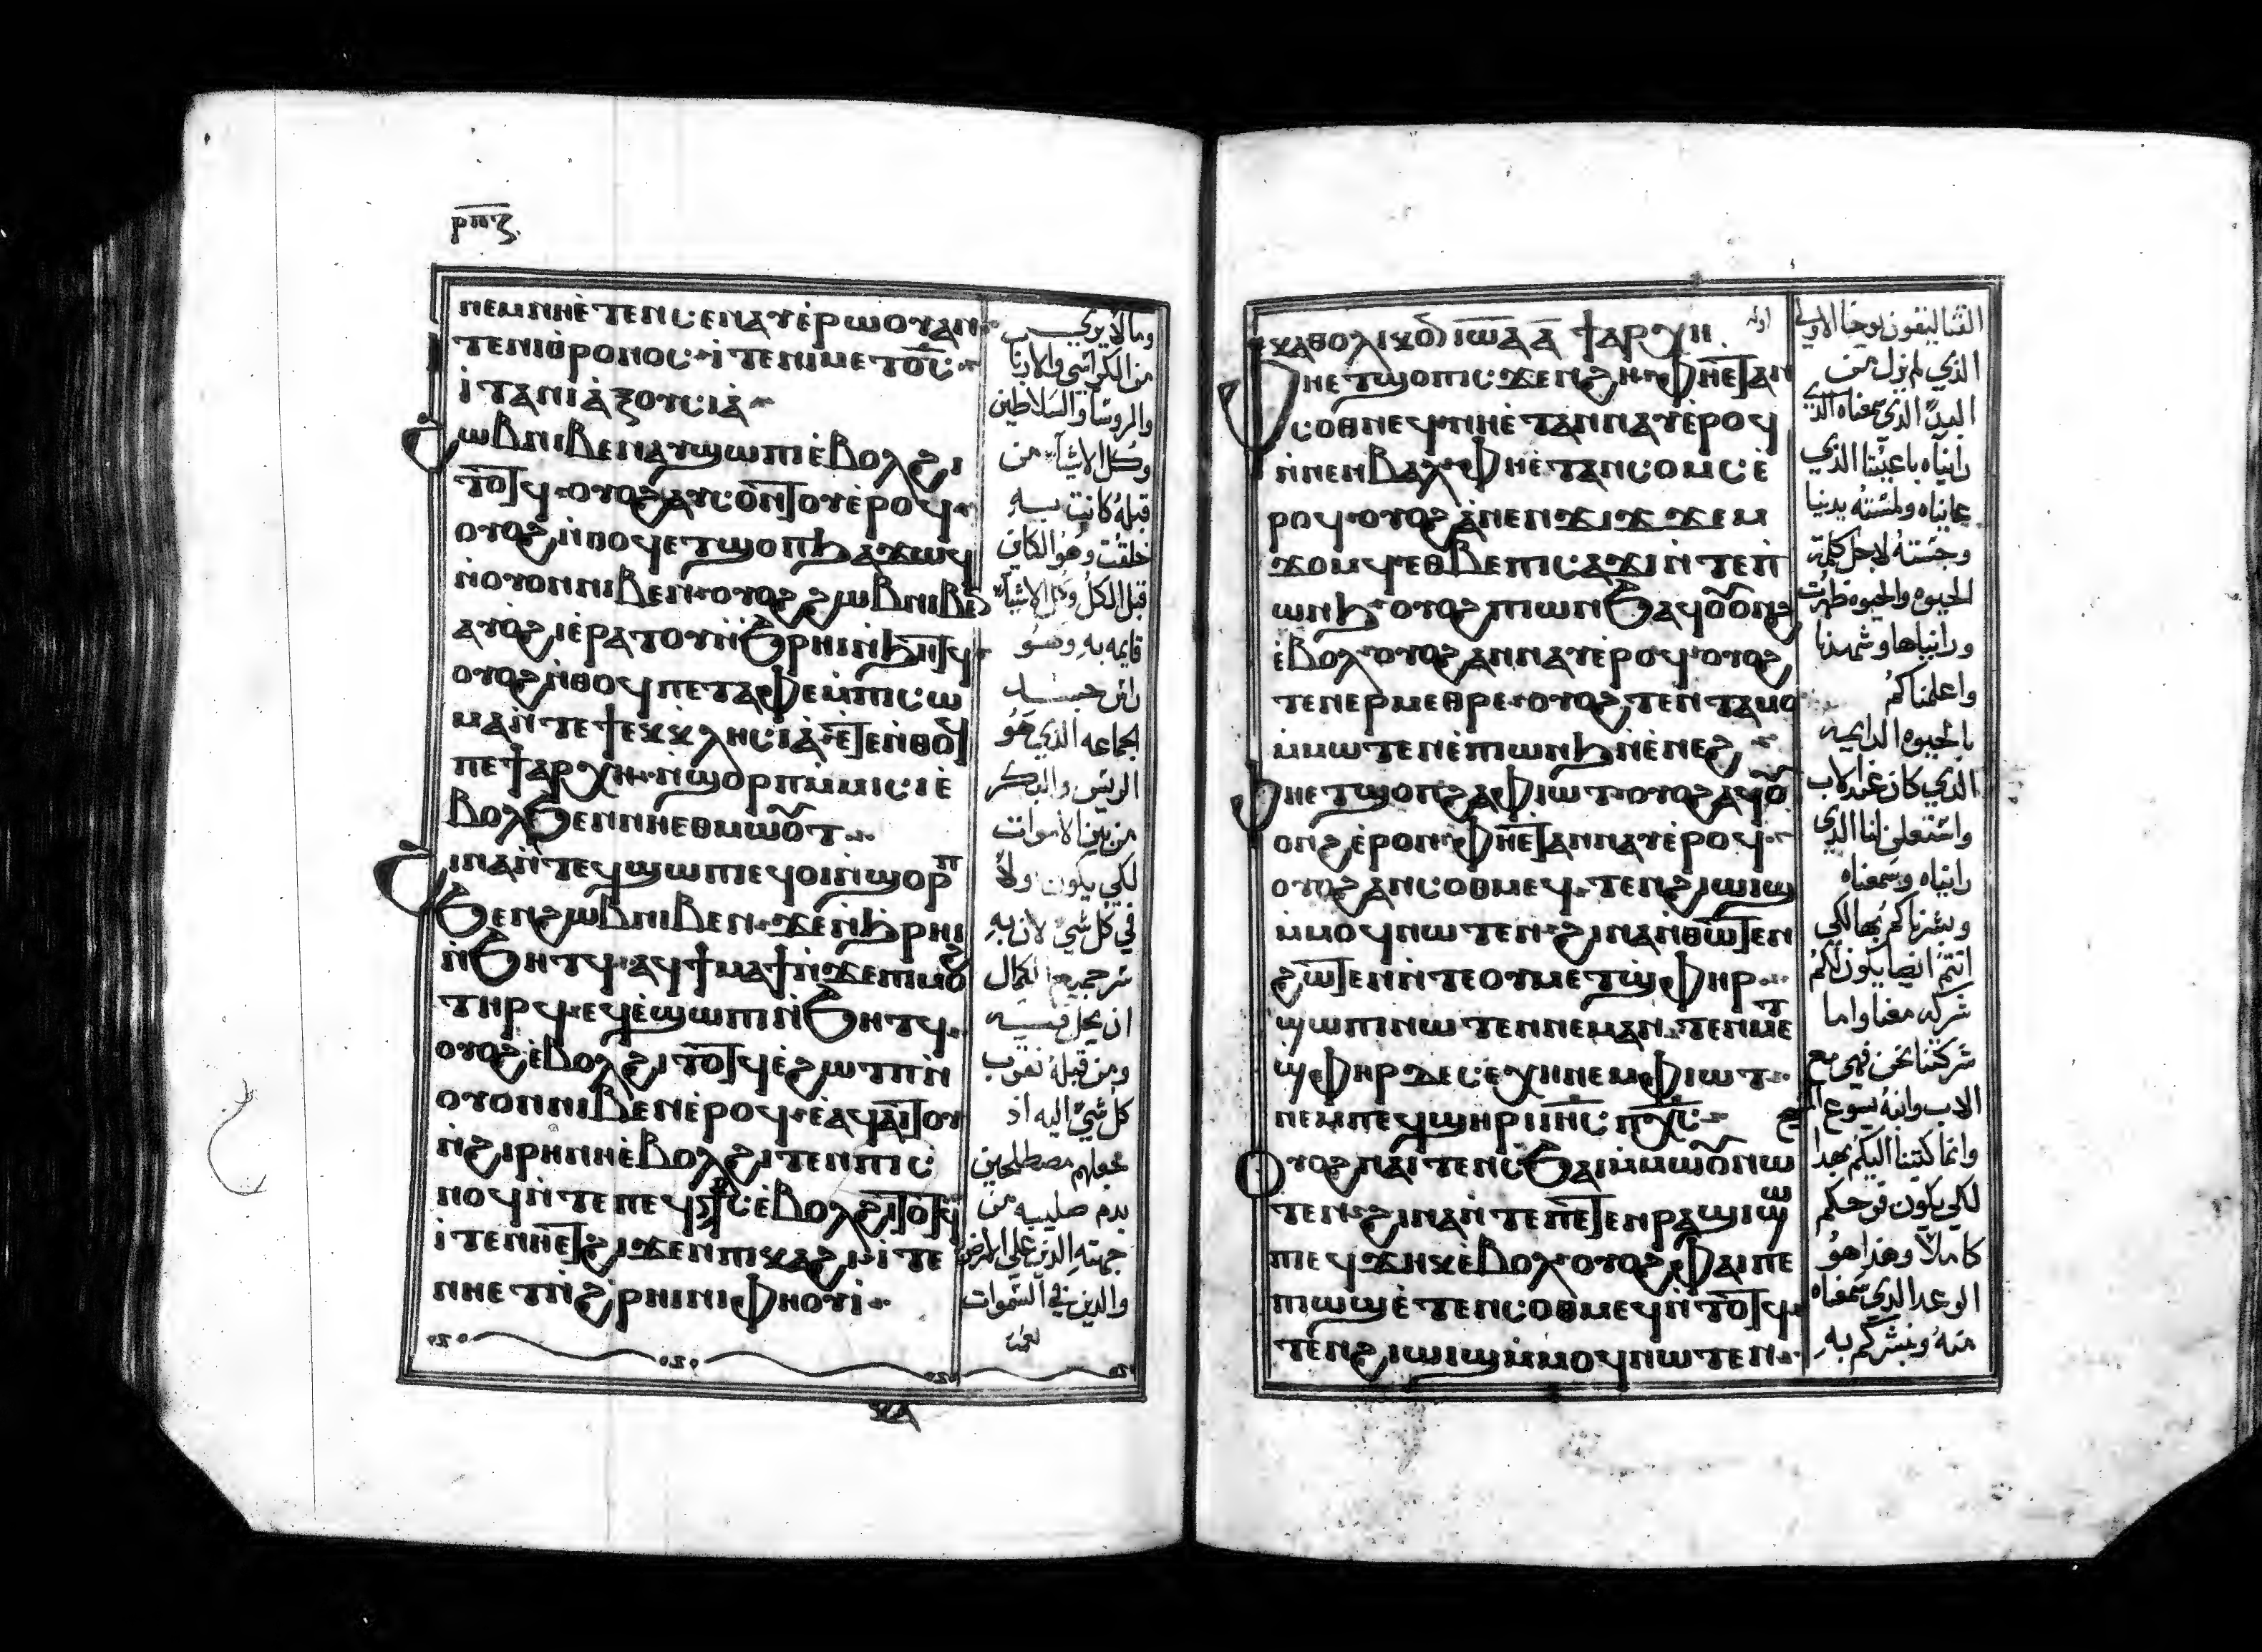 ⲣⲡⲍ
ⲛⲉⲙⲛⲏⲉ̀ⲧⲉⲛⲥⲉⲛⲁⲩⲉ̀ⲣⲱⲟⲩⲁⲛ
ⲧⲉⲛⲓⲑⲣⲟⲛⲟⲥ ⲓ̀ⲧⲉⲛⲓⲙⲉⲧⲟ̅ⲥ̅
ⲓ̀ⲧⲁⲛⲓⲁ̀ⲝⲟⲩⲥⲓⲁ̀
ϩⲱⲃⲛⲓⲃⲉⲛⲁⲩϣⲱⲡⲓⲉ̀ⲃⲟⲗϩⲓ
ⲧⲟⲧϥ ⲟⲩⲟϩⲁⲩⲥⲟⲛⲧⲟⲩⲉ̀ⲣⲟϥ
ⲟⲩⲟϩⲛ̀ⲑⲟϥⲉⲧϣⲟⲡϧⲁϫⲱϥ
ⲛ̀ⲟⲩⲟⲛⲛⲓⲃⲉⲛ ⲟⲩⲟϩϩⲱⲃⲛⲓⲃⲉ̅
ⲁⲩⲟϩⲓⲉ̀ⲣⲁⲧⲟⲩⲛ̀ϧⲣⲏⲓⲛ̀ϧⲏⲧϥ
ⲟⲩⲟϩⲛ̀ⲑⲟϥⲡⲉⲧⲁⲫⲉⲙ̀ⲡⲓⲥⲱ
ⲙⲁⲛ̀ⲧⲉϯⲉⲕⲕⲗⲏⲥⲓⲁ̀ ⲉ̀ⲧⲉⲛ̀ⲑⲟϥ
ⲡⲉϯⲁⲣⲭⲏ ⲛ̀ϣⲟⲣⲡⲙ̀ⲙⲓⲥⲓⲉ̀
ⲃⲟⲗϧⲉⲛⲛⲏⲉⲑⲙⲱⲟⲩⲧ
ϩⲓⲛⲁⲛ̀ⲧⲉϥϣⲱⲡⲓⲉϥⲟⲓⲛ̀ϣⲟⲣⲡ
ϧⲉⲛϩⲱⲃⲛⲓⲃⲉⲛ ϫⲉⲛ̀ϧⲣⲏⲓ
ⲛ̀ϧⲏⲧϥ ⲁϥϯⲙⲁϯⲛ̀ϫⲉⲡⲓⲙⲟϩ
ⲧⲏⲣϥ ⲉϥⲉ̀ϣⲱⲡⲓⲛ̀ϧⲏⲧϥ
ⲟⲩⲟϩⲉ̀ⲃⲟⲗϩⲓⲧⲟⲧϥⲉ̀ϩⲱⲧⲡⲛ̀
ⲟⲩⲟⲛⲛⲓⲃⲉⲛⲉ̀ⲣⲟϥ ⲉ̀ⲁϥⲁⲓⲧⲟⲩ
ⲛ̀ϩⲓⲣⲏⲛⲏⲉ̀ⲃⲟⲗϩⲓⲧⲉⲛⲡⲓⲥ
ⲛⲟϥⲛ̀ⲧⲉⲡⲉϥⲥ̅ⲧ̅ⲥ̅ⲉ̀ⲃⲟⲗϩⲓⲧⲟⲧϥ
ⲓ̀ⲧⲉⲛⲏⲉⲧϩⲓϫⲉⲛⲡⲓⲕⲁϩⲓ ⲓ̀ⲧⲉ
ⲛⲏⲉⲧⲛ̀ϩⲣⲏⲓⲛⲓⲫⲏⲟⲩⲓ̀
ⲕⲁ
وما لا يرى
من الكراسي والارباب
والروسا والسلاطين
وكل الاشيا من
قبله كانت وبه
خلقت وهو الكاين
قبل الكل وكل الاشيا
قايمه به وهو
راس جسد
الجماعه الذي هو
الريس والبكر
من بين الاموات
لكي يكون اولا
في كل شي لان به
سر جميع الكمال
ان يحل فيه
ومن قبله نقرب
كل شي اليه اذ
جعلهم مصطلحين
بدم صليبه من
جهته الذين على الارض
والذين في السموات
ⲕⲁⲑⲟⲗⲓⲕⲟⲛ ⲓⲱ̅ⲁ ⲁ̅ ϯⲁⲣⲭⲏ
ⲫⲏⲉⲧϣⲟⲡⲓⲥϫⲉⲛϩⲏ ⲫⲏⲉ̀ⲧⲁⲛ
ⲥⲟⲑⲙⲉϥ ⲛⲏⲉ̀ⲧⲁⲛⲛⲁⲩⲉ̀ⲣⲟϥ
ⲛ̀ⲛⲉⲛⲃⲁⲗ ⲫⲏⲉ̀ⲧⲁⲛⲥⲟⲙⲥⲉ̀
ⲣⲟϥ ⲟⲩⲟϩⲁ̀ⲛⲉⲛϫⲓϫϫⲉⲙ
ϫⲟⲙϥⲉⲑⲃⲉⲡⲓⲥⲁϫⲓⲛ̀ⲧⲉⲡ
ⲱⲛϧ ⲟⲩⲟϩⲡⲓⲱⲛϧⲁϥⲟⲩⲟⲛϩ
ⲉ̀ⲃⲟⲗ ⲟⲩⲟϩⲁⲛⲛⲁⲩⲉ̀ⲣⲟϥ ⲟⲩⲟϩ
ⲧⲉⲛⲉⲣⲙⲉⲑⲣⲉ ⲟⲩⲟϩⲧⲉⲛⲧⲁⲙⲟ
ⲙ̀ⲙⲱⲧⲉⲛⲉ̀ⲡⲓⲱⲛϧⲛ̀ⲉ̀ⲛⲉϩ
ⲫⲏⲉⲧϣⲟⲡϩⲁⲫⲓⲱⲧ ⲟⲩⲟϩⲁϥⲟⲩ
ⲟⲛϩⲉ̀ⲣⲟⲛ ⲫⲏⲉⲧⲁⲛⲛⲁⲩⲉ̀ⲣⲟϥ
ⲟⲩⲟϩⲁⲛⲥⲟⲑⲙⲉϥ ⲧⲉⲛϩⲓⲱⲓϣ
ⲙ̀ⲙⲟϥⲛⲱⲧⲉⲛ ϩⲓⲛⲁⲛ̀ⲑⲱⲧⲉⲛ
ϩⲱⲧⲉⲛⲛ̀ⲧⲉⲟⲩⲙⲉⲧϣ̀ⲫⲏⲣ
ϣⲱⲡⲓⲛⲱⲧⲉⲛⲛⲉⲙⲁⲛ ⲧⲉⲛⲙⲉⲧ
ϣ̀ⲫⲏⲣⲇⲉⲥⲉ̀ⲭⲏⲛⲉⲙⲫⲓⲱⲧ
ⲛⲉⲙⲡⲉϥϣⲏⲣⲓⲓⲏ̅ⲥ̅ ⲡⲭ̅ⲥ̅
ⲟⲩⲟϩⲛⲁⲓⲧⲉⲛⲥϧⲁⲓⲙ̀ⲙⲱⲟⲩⲛⲱ
ⲧⲉⲛ ϩⲓⲛⲁⲛ̀ⲧⲉⲡⲉⲧⲉⲛⲣⲁϣⲓϣⲱ
ⲡⲓⲉϥϫⲏⲕⲉ̀ⲃⲟⲗ ⲟⲩⲟϩⲫⲁⲓⲡⲉ
ⲡⲓⲱϣⲉ̀ⲧⲉⲛⲥⲟⲑⲙⲉϥⲛ̀ⲧⲟⲧϥ
ⲧⲉⲛϩⲓⲱⲓϣⲙ̀ⲙⲟϥⲛⲱⲧⲉⲛ
القتاليقون يوحنا الاولى
الذي لم يزل من
البدي الذي سمعناه الذي
رايناه باعيننا الذي
عايناه ولمسته يدينا
وجسته لاجل كلمة
الحيوه والحيوه ظهرت
ورايناها وشهدنا
واعلمناكم
بالحيوه الدايمه
الذي كان عند الاب
واستعلن لنا الذي
رايناه وسمعناه
وبشرناكم بها لكي
انتم ايضا يكون لكم
شركه معنا واما
شركتنا نحن فهي مع
الاب وابنه يسوع المسيح
وانما كتبنا اليكم بهذا
لكي يكون فرحكم
كاملا وهذا هو
الوعد الذي سمعناه
منه ونبشركم به